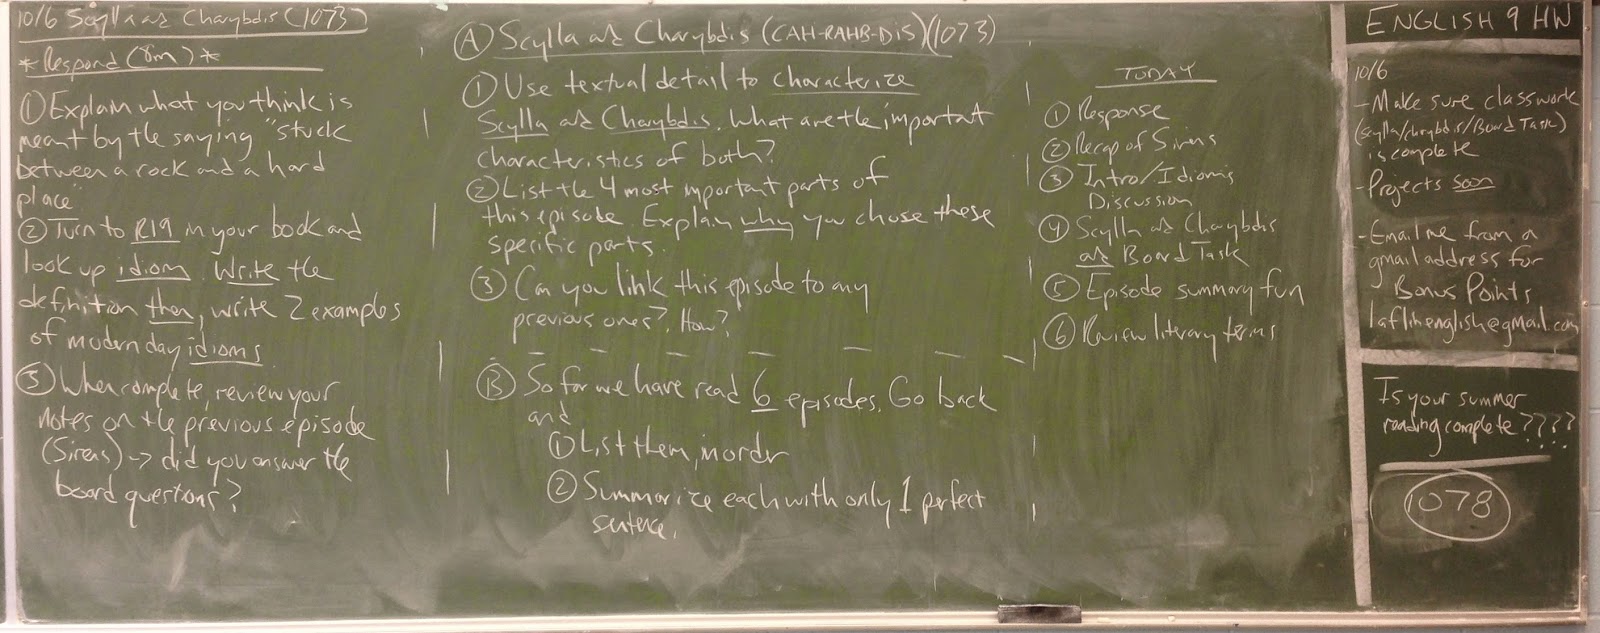 10/6 Scylla and Charybdis (1073)
*Respond (8m)*
① Explain what you think is
meant by the saying "stuck
between a rock and a hard
place"
② Turn to R19 in your book and
look up idiom. Write the
definition then, write 2 examples
of modern day idioms.
③ When complete, review your
notes on the previous episode
(Sirens) → did you answer the
board questions?
Ⓐ Scylla and Charybdis (CAH-RAHB-DIS) (1073)
① Use textual detail to characterize
Scylla and Charybdis. What are the important
characteristics of both?
② List the 4 most important parts of
this episode. Explain why you chose these
specific parts.
③ Can you link this episode to any
previous ones? How?
Ⓑ So far we have read 6 episodes. Go back
and
① List them, in order
② Summarize each with only 1 perfect
sentence.
TODAY
① Response
② Recap of Sirens
③ Intro/Idioms
Discussion
④ Scylla and Charybdis
and Board Task
⑤ Episode summary fun
⑥ Review literary terms
ENGLISH 9 HW
10/6
- Make sure classwork
(scylla/charybdis/Board Task)
is complete
- Projects soon
- Email me from a
gmail address for
Bonus Points
laflinenglish@gmail.com
Is your summer
reading complete????
1078